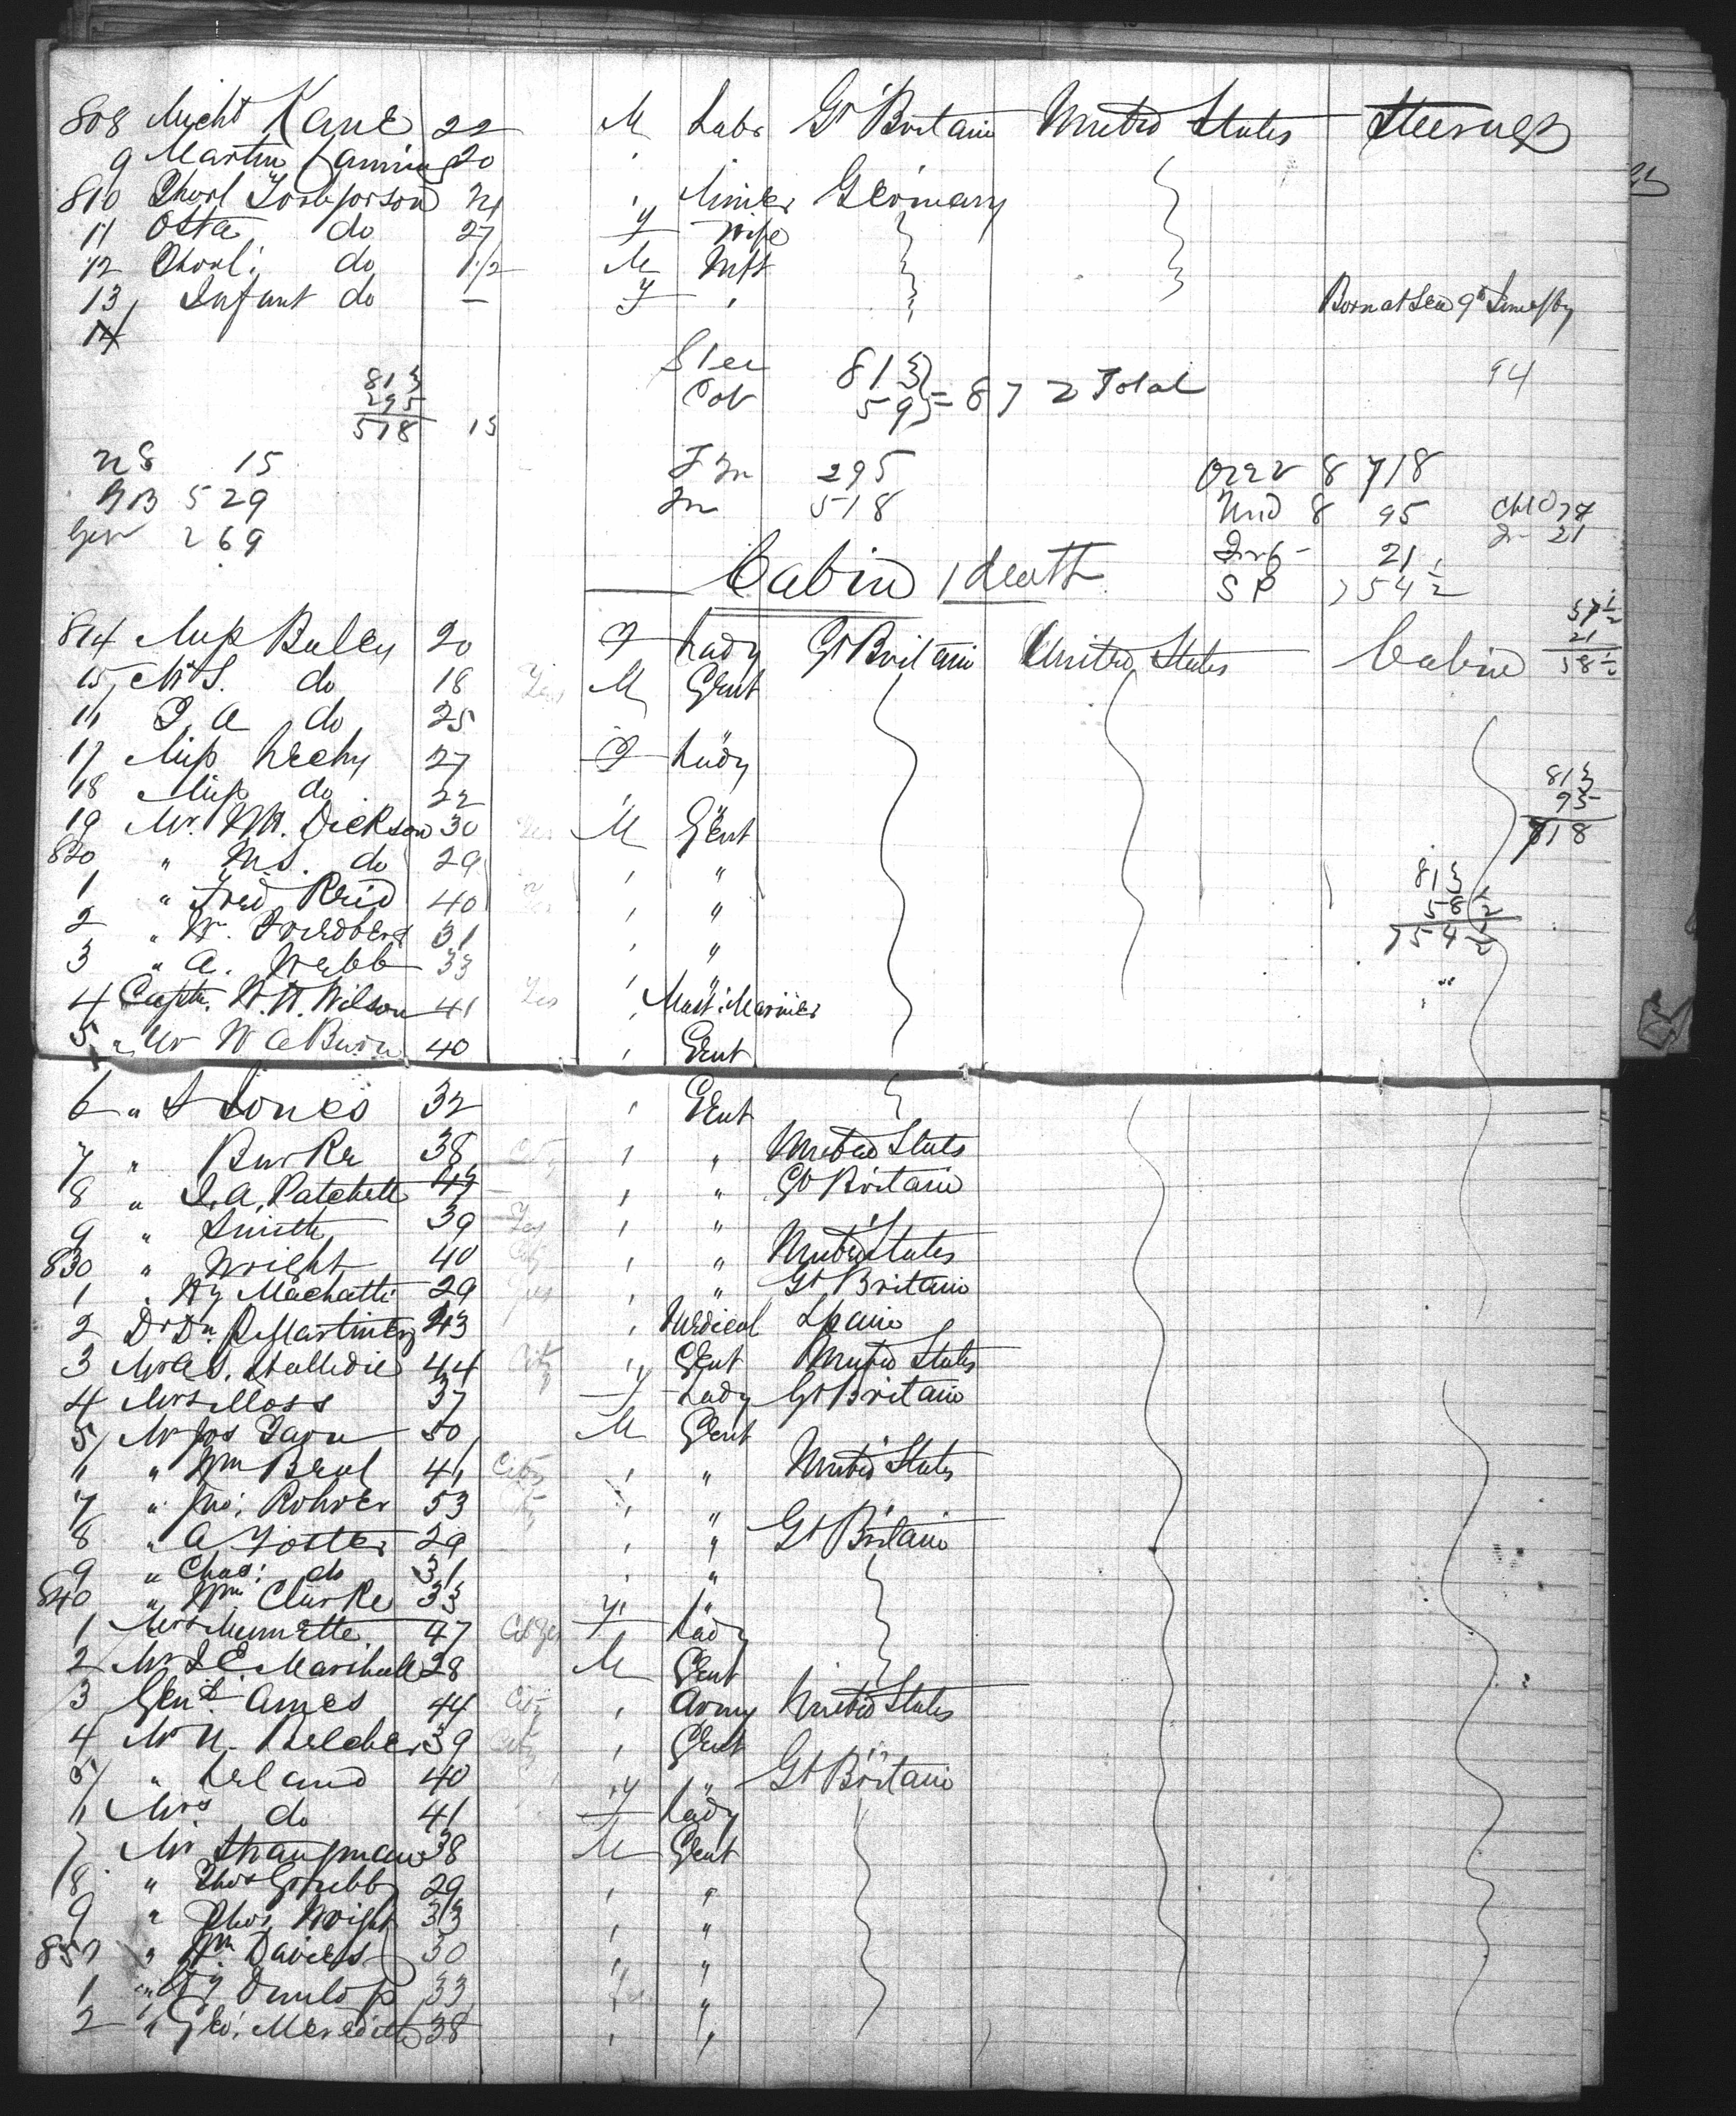 808 Michl Kane 22 M Labr Gt Britain United States Steerage
9 Martin 20 '
810 Thorl Torbjorson 24 ' Miner Germany
11 Osta do 27 F Wife
12 Thorl: do 1 1/2 M Inft
13 Infant do — F ' Born at Sea 9th
14
Stee 813
Cab 59 = 872 Total 94
813
295
518 15
US 15 295 8 718
GB 529 518 8 95
Ger 269 Inf - 21
Cabin 1 death SP 754 1/2
814 Miss Buley 20 F Lady Gt Britain United States Cabin 58 1/2
15 Mr S. do 18 Yes M Gent
16 do 25
17 Miss Leehy 27 F Lady
18 Miss do 22 "
19 Mr. Dickson 30 Yes M Gent
820 " M.S. do 29 ' "
1 " Fred Reid 40 Yes ' "
2 " W. Friedberg 31 ' "
3 " A. Webb 33 ' "
4 Captn. W.H. Wilson 41 Yes ' Mast: Mariner
5 " Mr W A Burn 40 ' Gent
813
95
718
813
58 1/2
754 1/2
6 " S Jones 32 ' Gent
7 " Burke 38 City ' " United States
8 " J.A. Patchett 43 ' " Gt Britain
9 " Smith 39 Yes ' "
830 " Wright 40 City ' " United States
1 " Hy Machatti 29 Yes ' " Gt Britain
2 Dr Dn R Martinez 43 ' Medical Spain
3 Mr A.S. Hallidie 44 City ' Gent United States
4 Mrs Moss 37 F Lady Gt Britain
5 Mr Jos Tarn 50 M Gent
6 " Wm Beal 41 City ' " United States
7 " Jno: Rohrer 53 City ' "
8 " A Foster 29 ' " Gt Britain
9 " Chas: do 31 ' "
840 " Wm Clarke 33 ' "
1 Mrs 47 F Lady
2 Mr J E. Marshall 28 M Gent
3 Genl. Ames 44 City ' Army United States
4 Mr N. Belcher 39 City ' Gent
5 " Leland 40 ' " Gt Britain
6 Mrs do 41 F Lady
7 Mr Strangman 38 M Gent
8 " Thos Grubb 29 ' "
9 " Thos Wright 33 ' "
850 " Wm Davies 30 ' "
1 " Hy Dunlop 33 Yes ' "
2 " Geo: Meredith 38 ' "